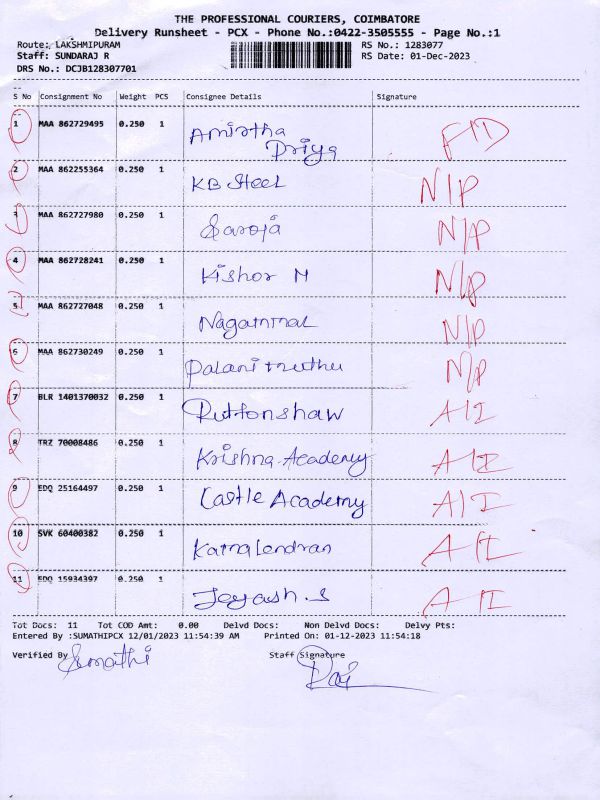 THE PROFESSIONAL COURIERS, COIMBATORE
Delivery Runsheet - PCX - Phone No.:0422-3505555 - Page No.:1
Route: LAKSHMIPURAM RS No.: 1283077
Staff: SUNDARAJ R RS Date: 01-Dec-2023
DRS No.: DCJB128307701
S No Consignment No Weight PCS Consignee Details Signature
1 MAA 862729495 0.250 1 Amirtha Priya F/D
2 MAA 862255364 0.250 1 KB Steel N/P
3 MAA 862727980 0.250 1 Saroja N/P
4 MAA 862728241 0.250 1 Kishor M N/P
5 MAA 862727048 0.250 1 Nagammal N/P
6 MAA 862730249 0.250 1 Palanimuthu N/P
7 BLR 1401370032 0.250 1 Ruttonshaw A/I
8 TRZ 70008486 0.250 1 Krishna Academy A/I
9 EDQ 25164497 0.250 1 Castle Academy A/I
10 SVK 60400382 0.250 1 A/I
11 EDQ 15934397 0.250 1 Jeyash.S A/I
Tot Docs: 11 Tot COD Amt: 0.00 Delvd Docs: Non Delvd Docs: Delvy Pts:
Entered By :SUMATHIPCX 12/01/2023 11:54:39 AM Printed On: 01-12-2023 11:54:18
Verified By Sumathi Staff Signature